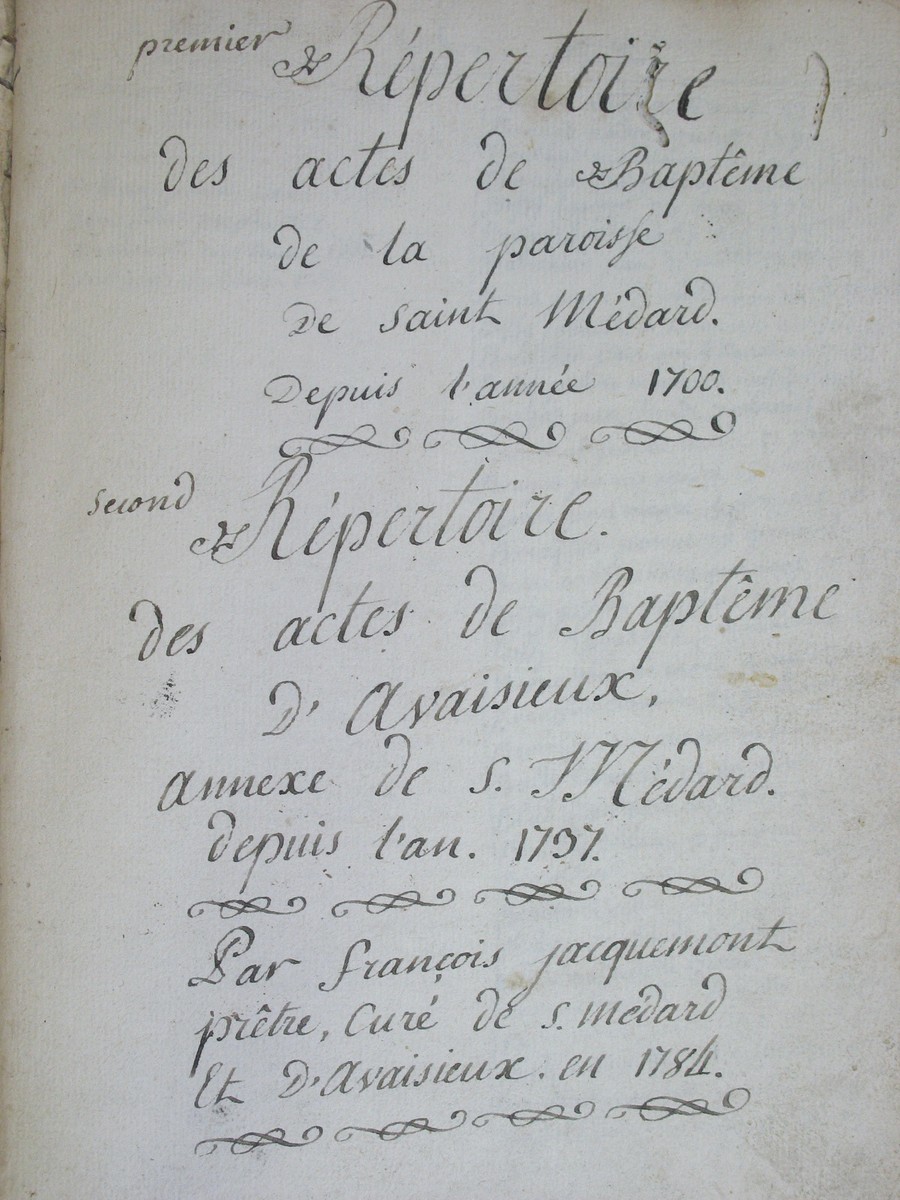 premier Répertoire
des actes de Baptême
de la paroisse
De saint Médard.
Depuis l'année 1700.
second
Répertoire.
des actes de Baptême
D'Avaisieux,
annexe de S. Médard.
depuis l'an. 1737.
Par françois jacquemont
prêtre, Curé de S. médard
Et D'Avaisieux. en 1784.